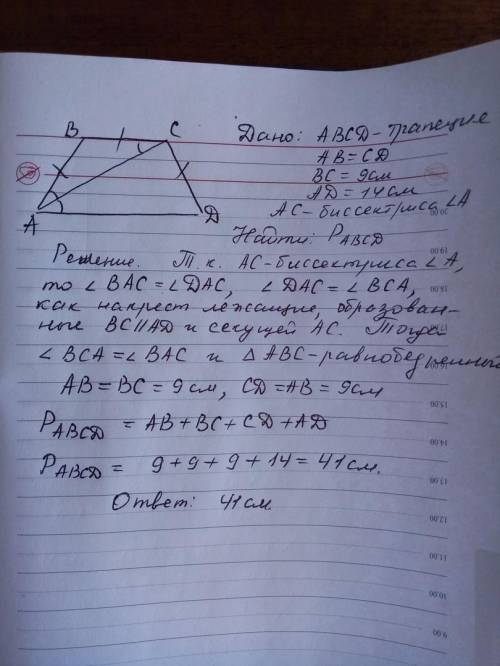 B C
A D
Дано: ABCD - трапеция
AB = CD
BC = 9 см
AD = 14 см
AC - биссектриса ∠A
Найти: P ABCD
Решение. Т.к. AC - биссектриса ∠A,
то ∠BAC = ∠DAC, ∠DAC = ∠BCA,
как накрест лежащие, образован-
ные BC || AD и секущей AC. Тогда
∠BCA = ∠BAC и △ABC - равнобедренный
AB = BC = 9 см, CD = AB = 9 см
P ABCD = AB + BC + CD + AD
P ABCD = 9 + 9 + 9 + 14 = 41 см.
Ответ: 41 см
20.00
19.00
18.00
17.00
16.00
15.00
14.00
13.00
12.00
11.00
10.00
9.00